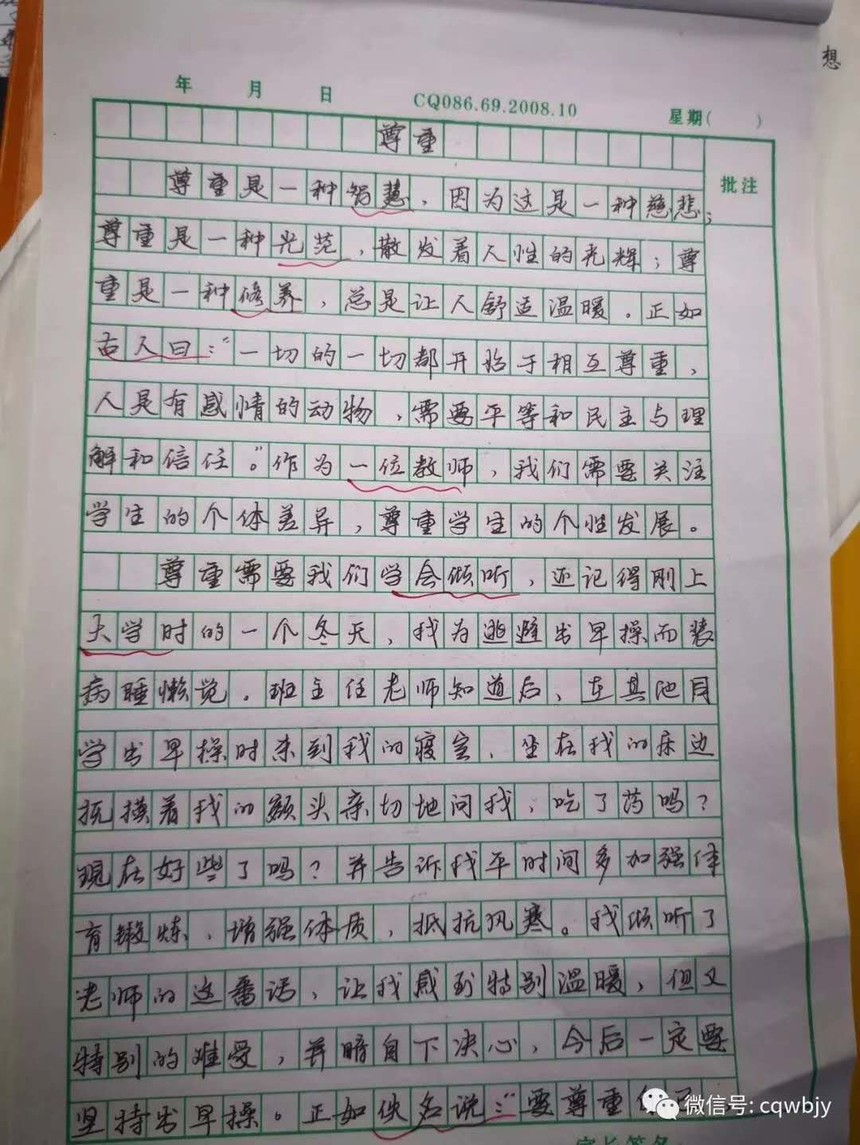 想
年 月 日 CQ086.69.2008.10 星期( )
批注
尊重
尊重是一种智慧，因为这是一种慈悲；
尊重是一种光茫，散发着人性的光辉；尊
重是一种修养，总是让人舒适温暖。正如
古人曰：“一切的一切都开始于相互尊重，
人是有感情的动物，需要平等和民主与理
解和信任。”作为一位教师，我们需要关注
学生的个体差异，尊重学生的个性发展。
尊重需要我们学会倾听，还记得刚上
大学时的一个冬天，我为逃避出早操而装
病睡懒觉。班主任老师知道后、在其他同
学出早操时来到我的寝室、坐在我的床边
抚摸着我的额头亲切地问我，吃了药吗？
现在好些了吗？并告诉我平时间多加强体
育锻炼、增强体质，抵抗风寒。我倾听了
老师的这番话，让我感到特别温暖，但又
特别的难受，并暗自下决心，今后一定要
坚持出早操。正如佚名说：“要尊重
微信号: cqwbjy
家长签名